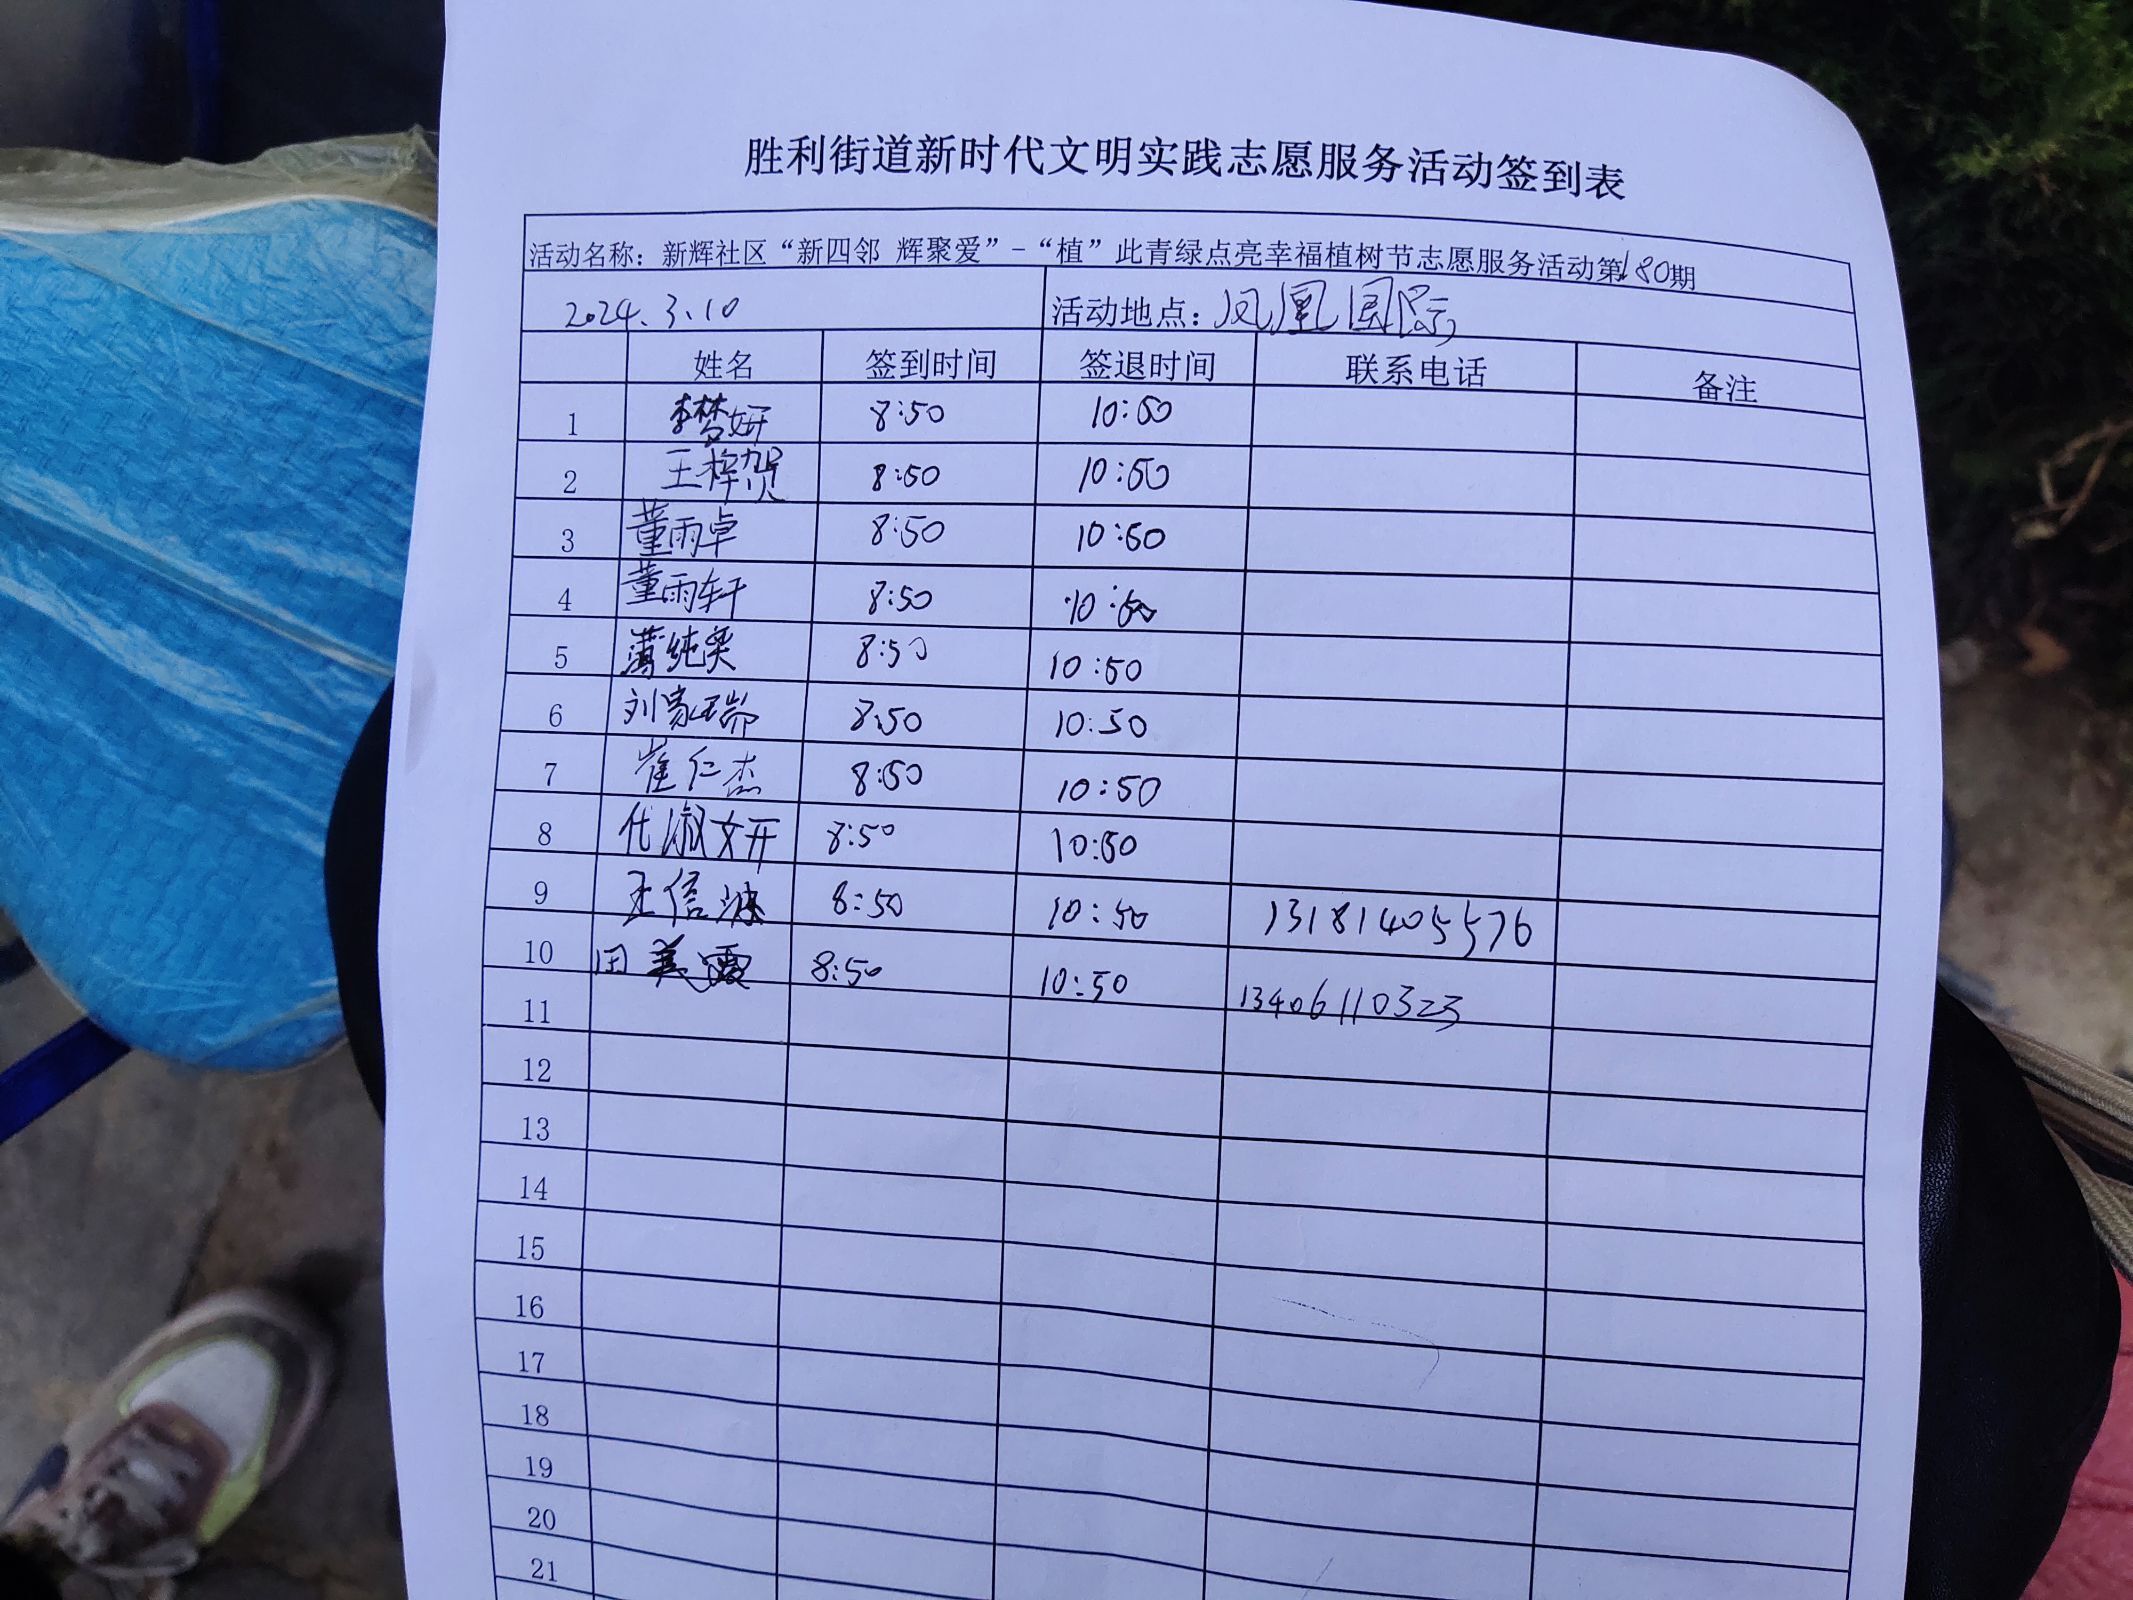 胜利街道新时代文明实践志愿服务活动签到表
活动名称：新辉社区“新四邻 辉聚爱”-“植”此青绿点亮幸福植树节志愿服务活动第180期
2024.3.10 活动地点：凤凰国际
姓名 签到时间 签退时间 联系电话 备注
1 李梦妍 8:50 10:50
2 王梓贺 8:50 10:50
3 董雨卓 8:50 10:50
4 董雨轩 8:50 10:50
5 薄纯奕 8:50 10:50
6 刘家瑞 8:50 10:50
7 崔仁杰 8:50 10:50
8 代淑妍 8:50 10:50
9 王信波 8:50 10:50 13181405576
10 田美霞 8:50 10:50 13406110323
11
12
13
14
15
16
17
18
19
20
21